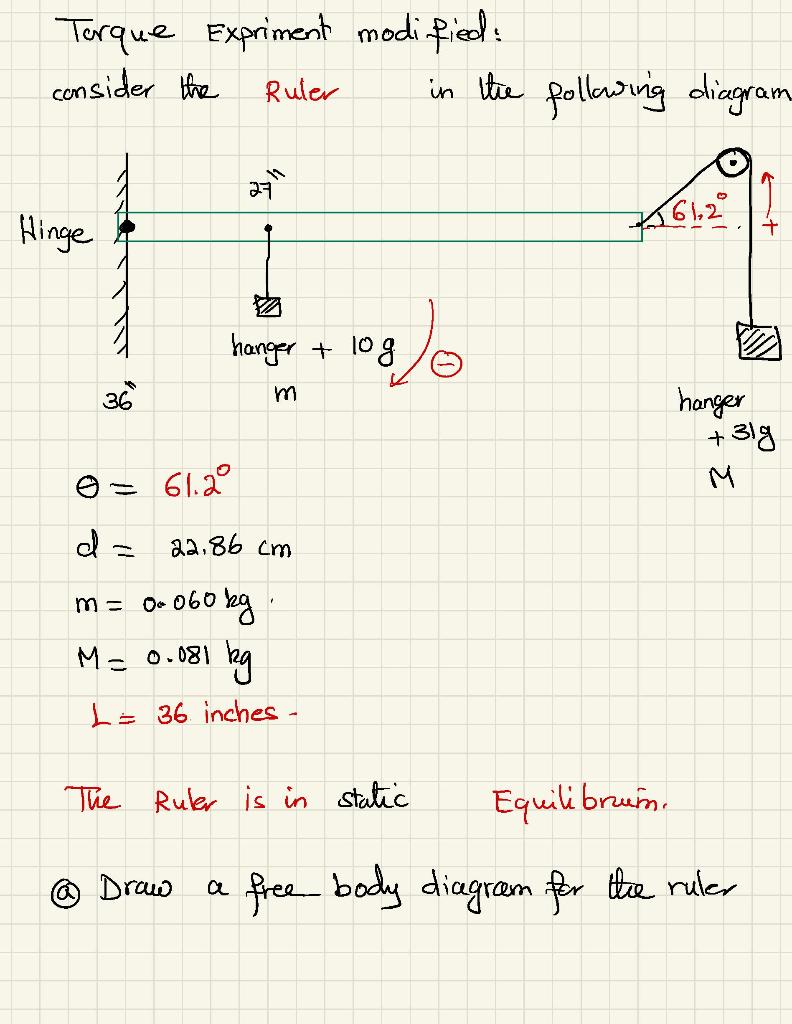 Torque Expriment modified:
consider the Ruler in the following diagram
27"
61.2°
+
Hinge
hanger + 10 g
−
36"
m
hanger
+ 31g
M
θ = 61.2°
d = 22.86 cm
m = 0.060 kg.
M = 0.081 kg
L = 36 inches -
The Ruler is in static Equilibrium.
ⓐ Draw a free body diagram for the ruler